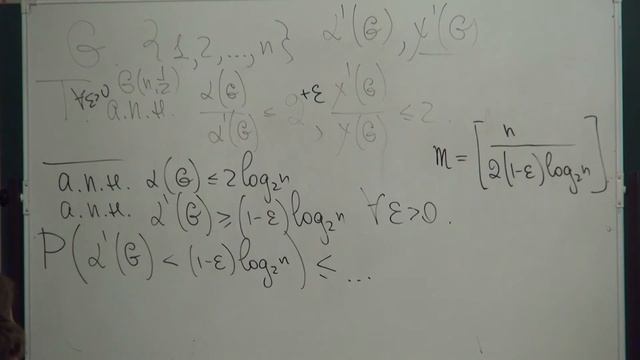 G. {1,2,...,n} α'(G), χ'(G)
T. ∀ε>0 G(n,1/2) а.п.н. α(G)/α'(G) ≤ 2+ε, χ'(G)/χ(G) ≤ 2.
m = [n/(2(1-ε)log₂n)]
а.п.н. α(G) ≤ 2log₂n
а.п.н. α'(G) ≥ (1-ε)log₂n ∀ε>0.
P(α'(G) < (1-ε)log₂n) ≤ ...